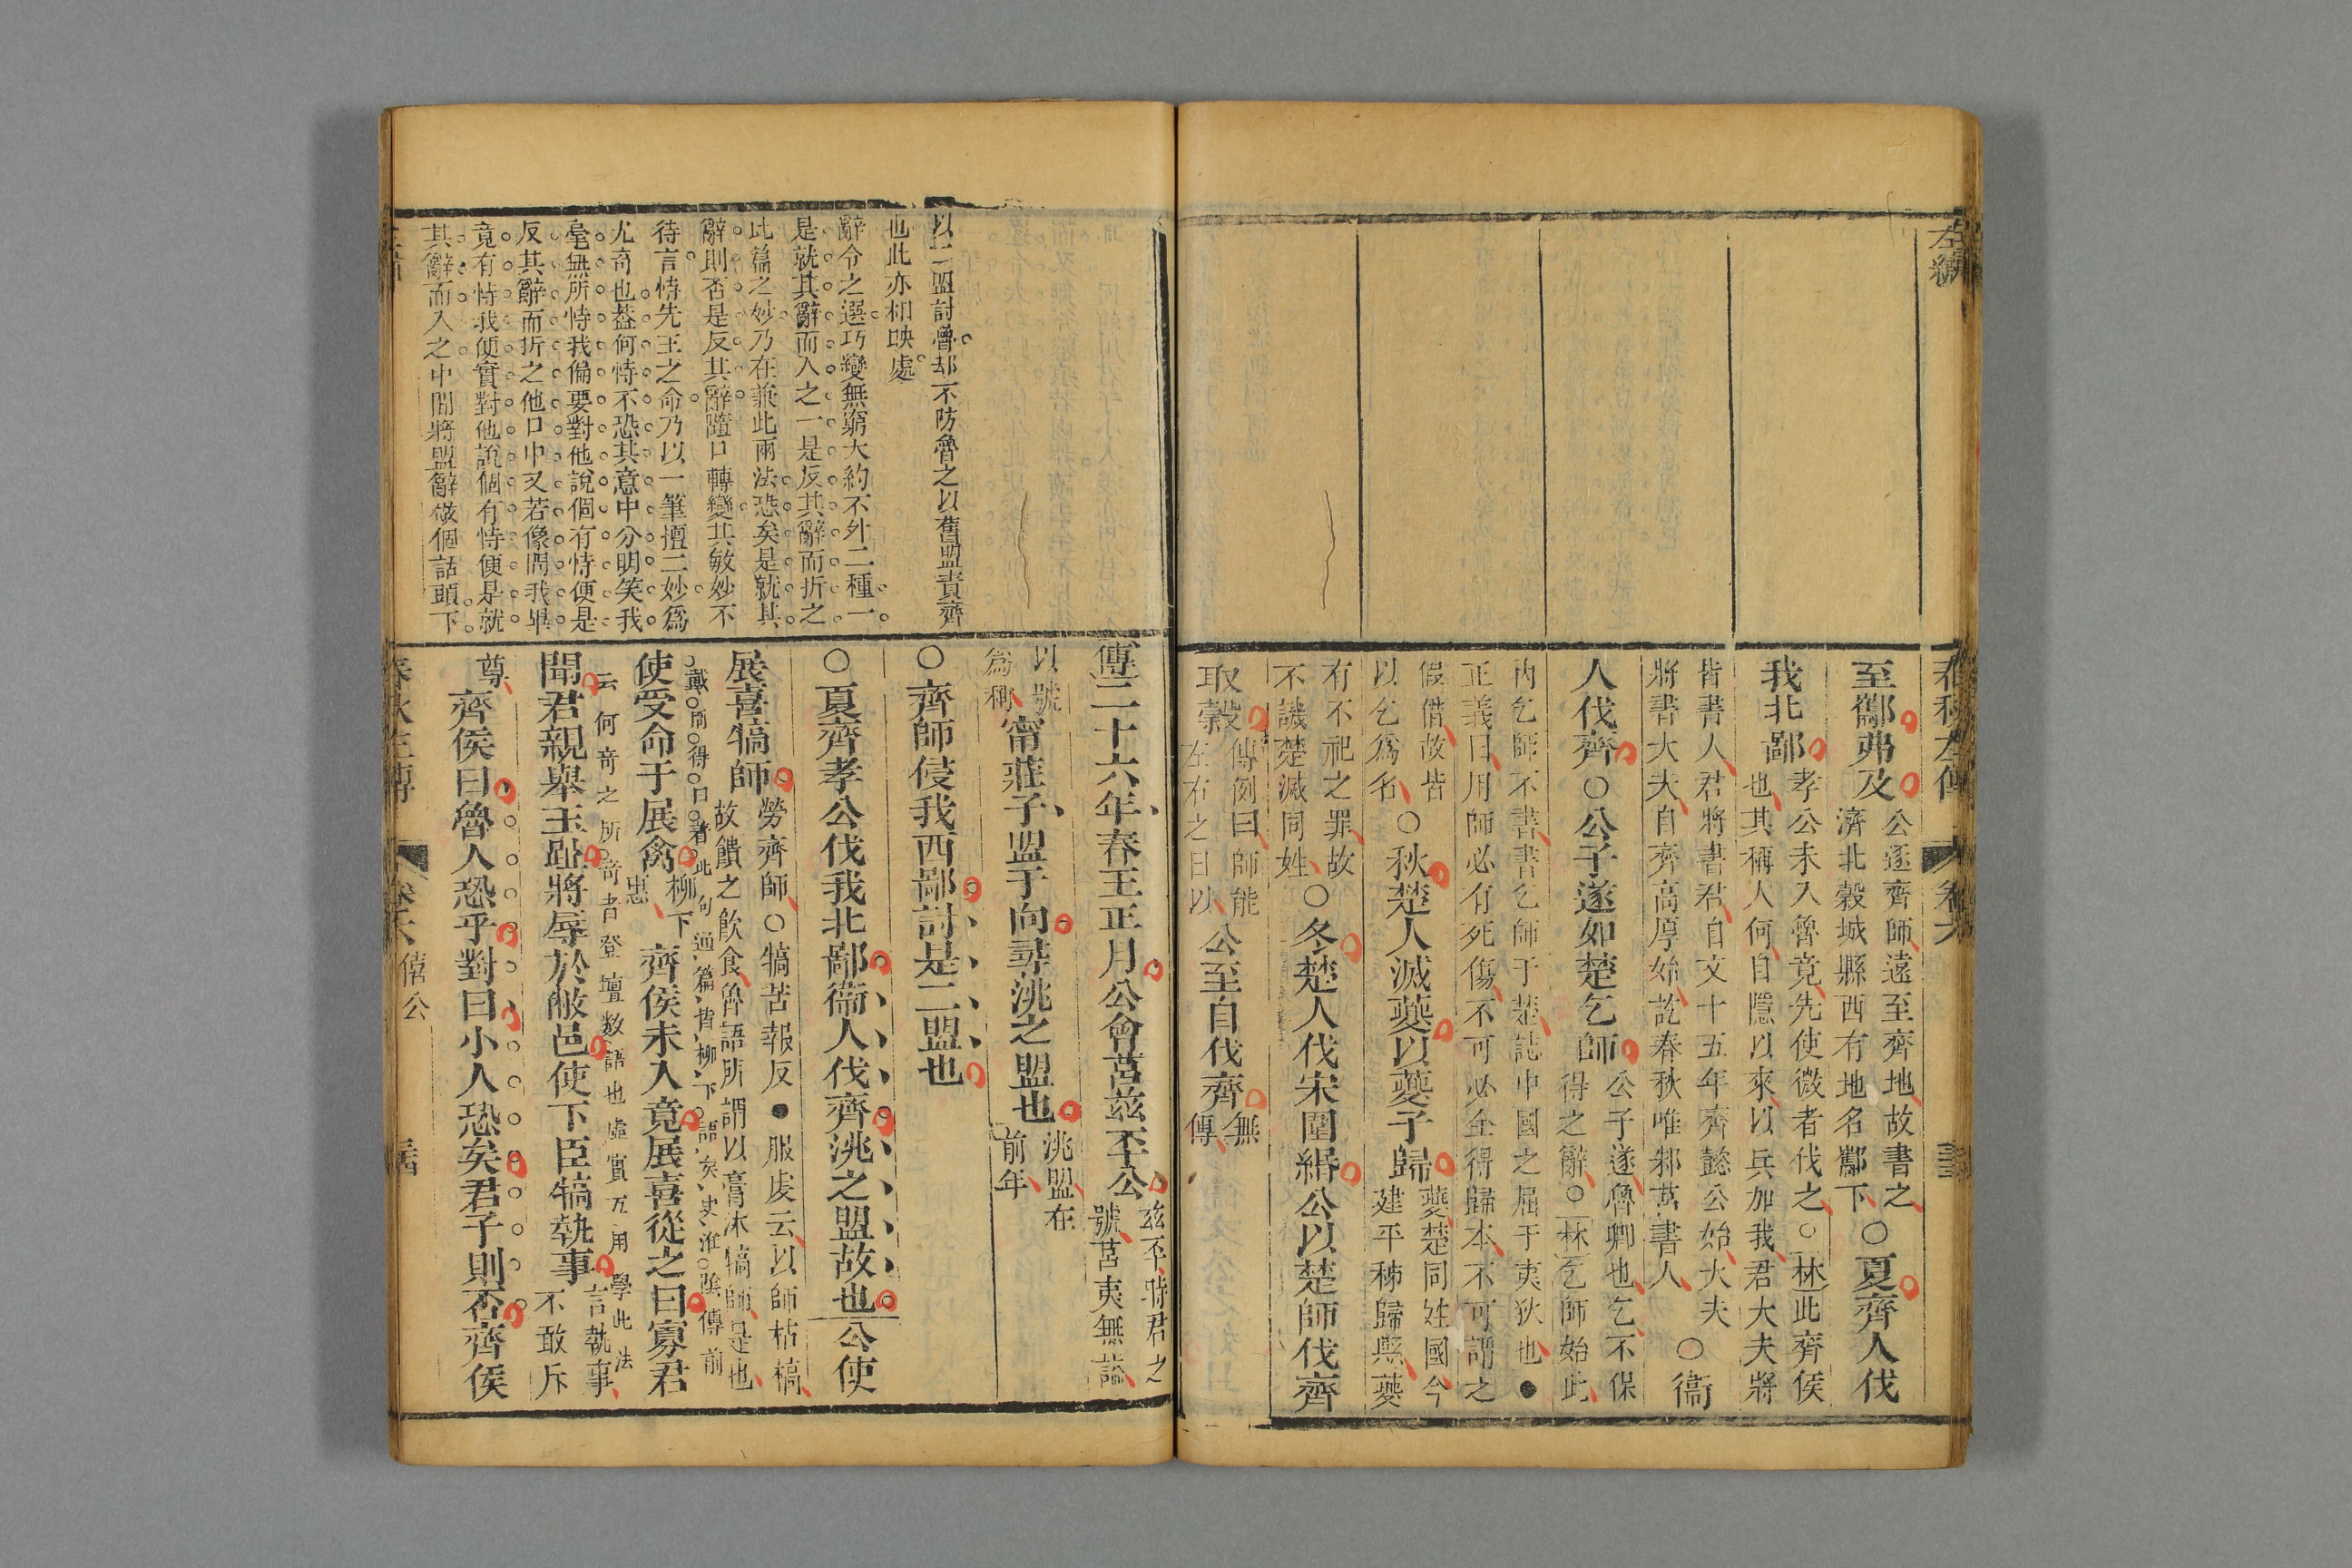 左繡
春秋左傳
卷六
至酅弗及
公逐齊師遠至齊地故書之
濟北穀城縣西有地名酅下
○夏齊人伐
我北鄙
孝公未入魯竟先使微者伐之○林此齊侯
也其稱人何自隱以來以兵加我君大夫將
皆書人君將書君自文十五年齊懿公始大夫
將書大夫自齊高厚始訖春秋唯邾莒書人
○衞
人伐齊○公子遂如楚乞師
公子遂魯卿也乞不保
得之辭○林乞師始此
內乞師不書書乞師于楚誌中國之屈于夷狄也●
正義曰用師必有死傷不可必全得歸本不可謂之
假借故皆
以乞爲名
○秋楚人滅夔以夔子歸
夔楚同姓國今
建平秭歸縣夔
有不祀之罪故
不譏楚滅同姓
○冬楚人伐宋圍緡公以楚師伐齊
取穀
傳例曰師能
左右之曰以
公至自伐齊
無
傳
以二盟討魯却不防魯之以舊盟責齊
也此亦相映處
辭令之選巧變無窮大約不外二種一
是就其辭而入之一是反其辭而折之
此篇之妙乃在兼此兩法恐矣是就其
辭則否是反其辭隨口轉變其敏妙不
待言恃先王之命乃以一筆擅二妙爲
尤奇也蓋何恃不恐其意中分明笑我
毫無所恃我偏要對他說個有恃便是
反其辭而折之他口中又若像問我畢
竟有恃我便實對他說個有恃便是就
其辭而入之中間將盟辭做個話頭下
傳二十六年春王正月公會莒茲丕公
茲丕時君之
號莒夷無諡
以號
爲稱
甯莊子盟于向尋洮之盟也
洮盟在
前年
○齊師侵我西鄙討是二盟也
○夏齊孝公伐我北鄙衞人伐齊洮之盟故也公使
展喜犒師
勞齊師○犒苦報反●服虔云以師枯槁
故饋之飲食魯語所謂以膏沐犒師是也
戴○岡○得○曰○著○此句通篇皆柳下語矣史淮陰傳前
使受命于展禽
柳下
惠
齊侯未入竟展喜從之曰寡君
云何奇之所奇者登壇數語也虛實互用學此法
聞君親舉玉趾將辱於敝邑使下臣犒執事
言執事
不敢斥
尊
齊侯曰魯人恐乎對曰小人恐矣君子則否齊侯
春秋左傳
卷六
僖公